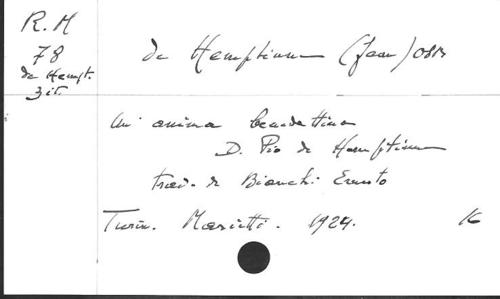 R.M
78
de Hempt.
3 it.
de Hemptinne (Jean) OSB
Un' anima benedettina
D. Pio de Hemptinne
trad. de Bianchi Ernesto
Turin. Marietti. 1924. 16